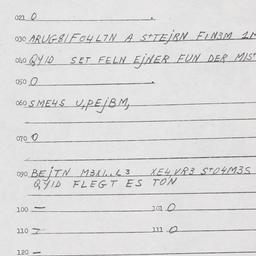 021 0
030 ARUG8IF04L7N A S+TEJRN FIN3M
040 QYID SET FELN EJNER FUN DER MIS
050 0
060 SME4S U,PEJBM,
070 0
090 BEJTN M3X1..L3 XE4,VR3 S+04M3S
QYID FLEGT ES TON
100 —
101 0
110 —
111 0
120 —